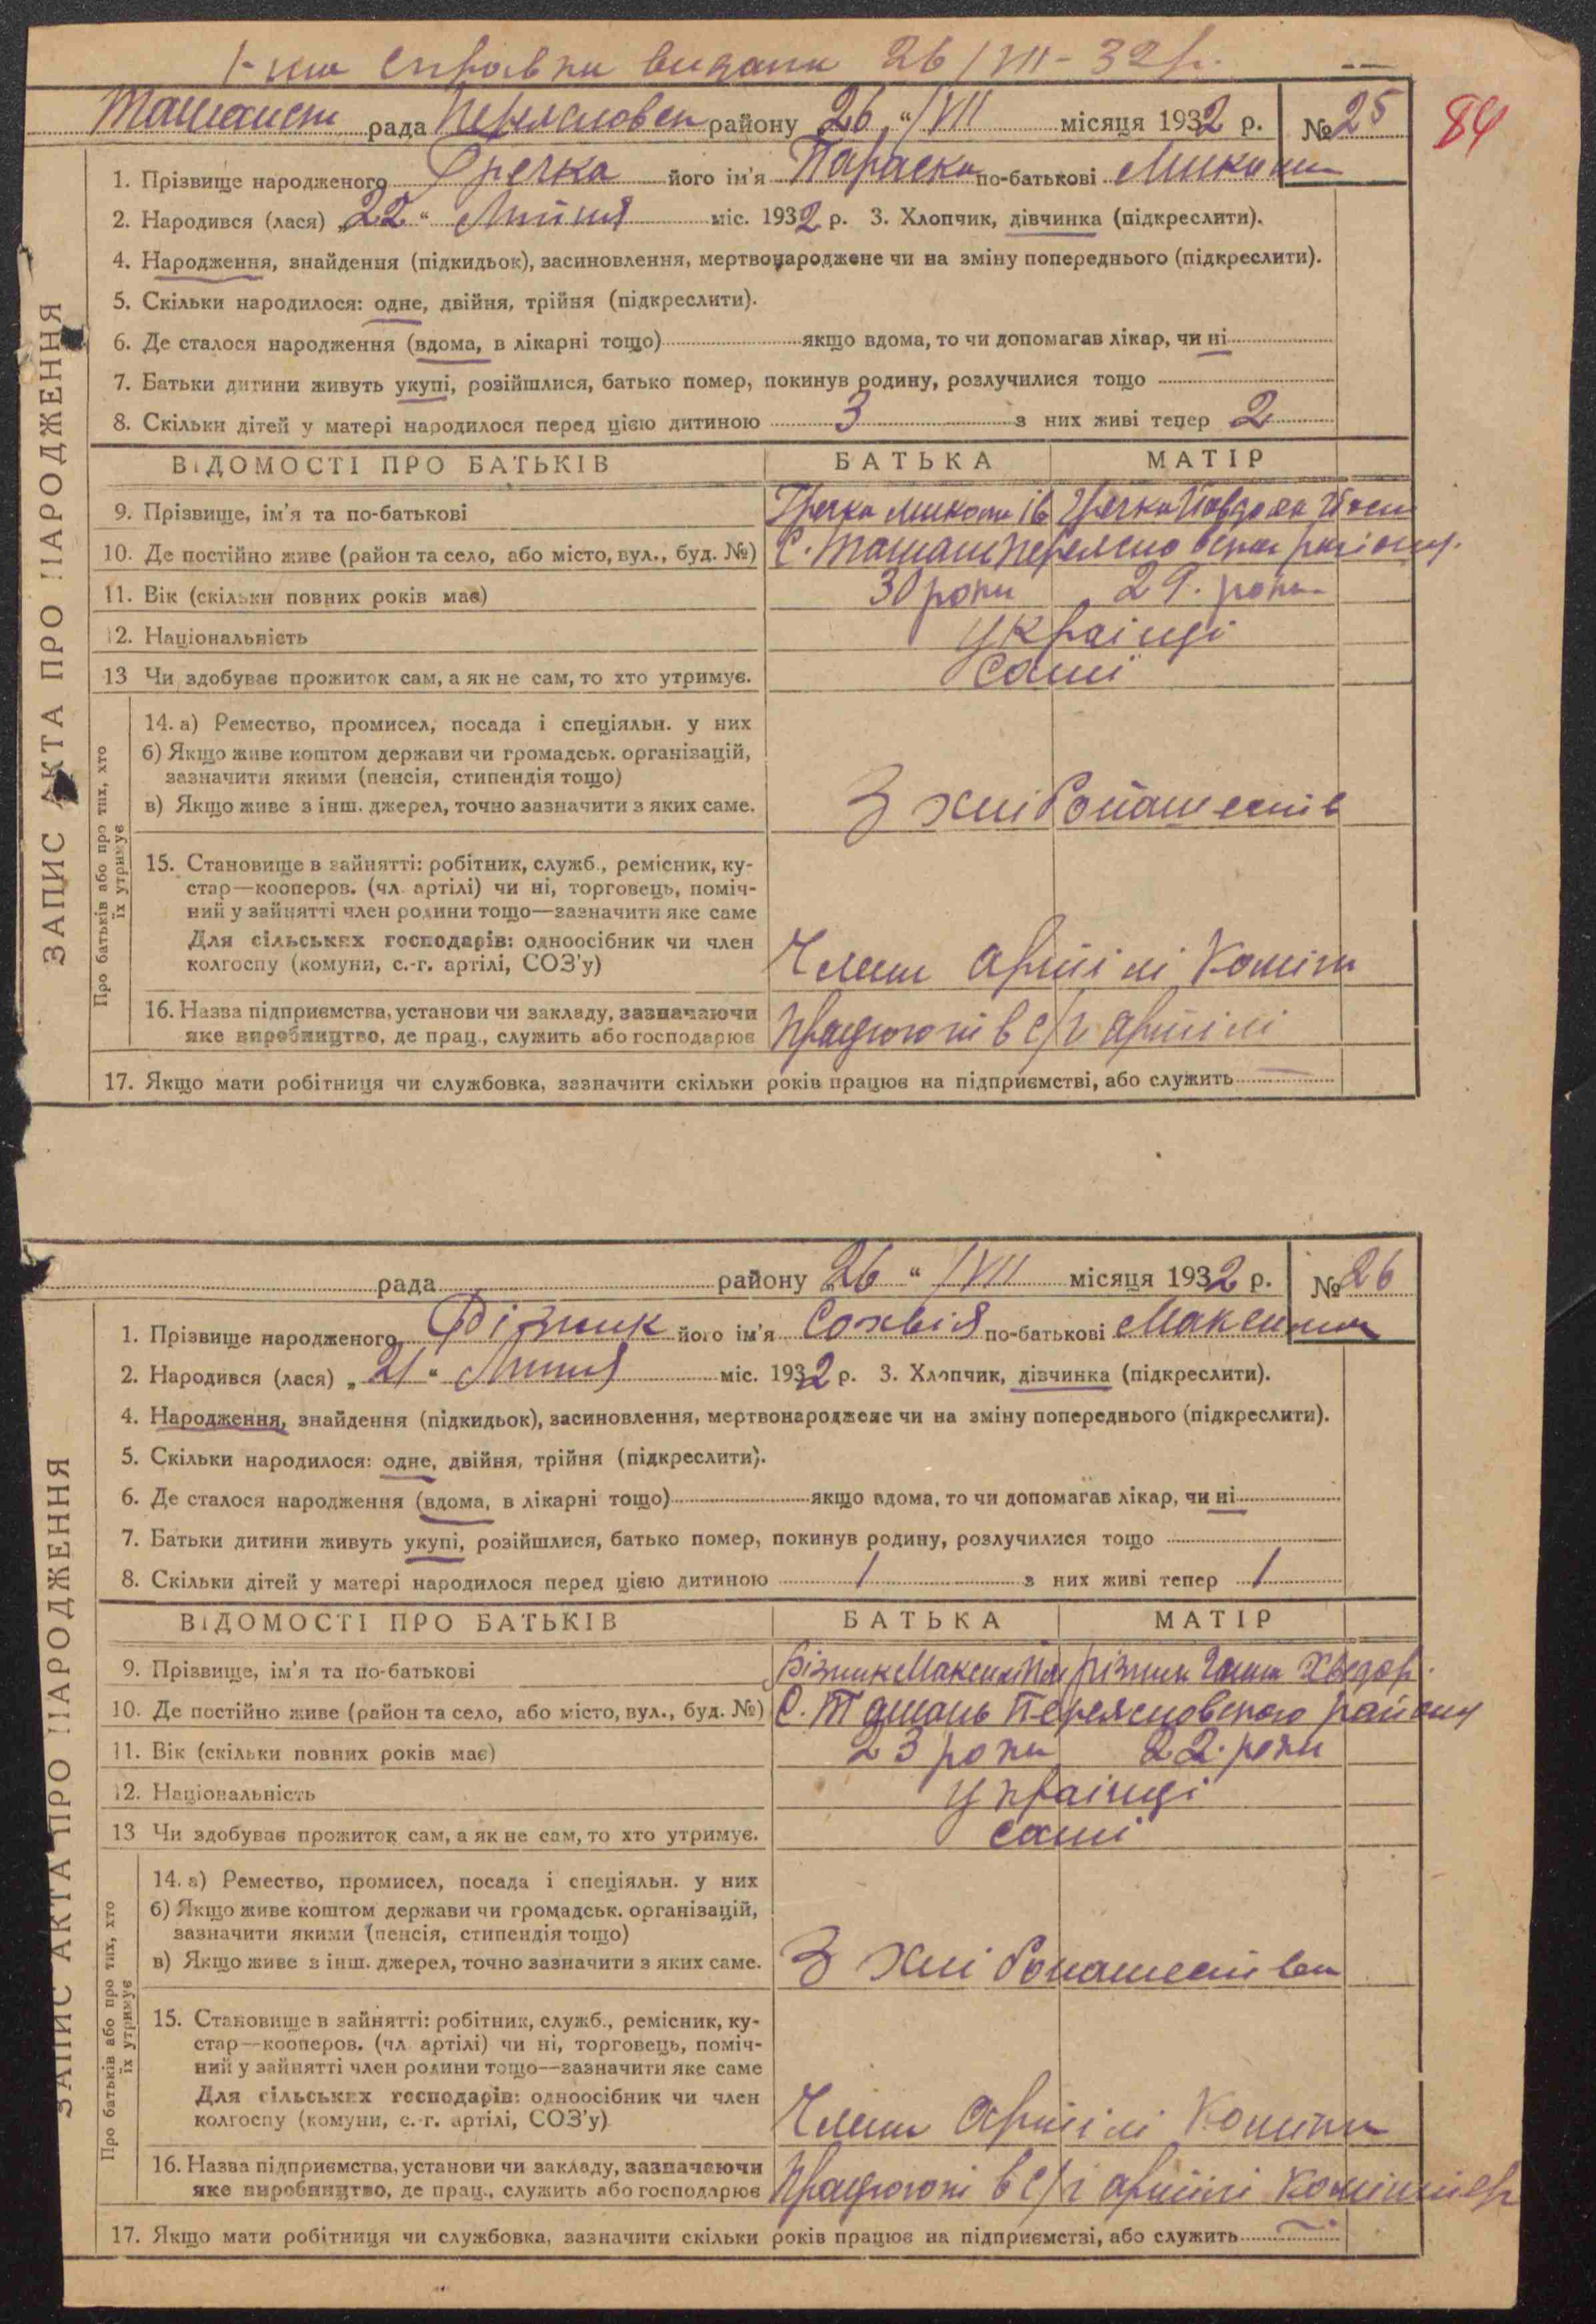 справки видани 26/VII-32 р.
рада район­у „26“ /VII місяця 1932 р. № 25
84
1. Прізвище народженого Гречка його ім'я Параска по-батькові
2. Народився (лася) „22“ Липня міс. 1932 р. 3. Хлопчик, дівчинка (підкреслити).
4. Народження, знайдення (підкидьок), засиновлення, мертвонароджене чи на зміну попереднього (підкреслити).
5. Скільки народилося: одне, двійня, трійня (підкреслити).
6. Де сталося народження (вдома, в лікарні тощо) якщо вдома, то чи допомагав лікар, чи ні
7. Батьки дитини живуть укупі, розійшлися, батько помер, покинув родину, розлучилися тощо
8. Скільки дітей у матері народилося перед цією дитиною 3 з них живі тепер 2
ВІДОМОСТІ ПРО БАТЬКІВ БАТЬКА МАТІР
9. Прізвище, ім'я та по-батькові Гречка Микола Ів Гречка Йовдоха
10. Де постійно живе (район та село, або місто, вул., буд. №) С. Ташань
11. Вік (скільки повних років має) 30 роки 29. роки
12. Національність Українці
13 Чи здобуває прожиток сам, а як не сам, то хто утримує. Самі
14. а) Ремество, промисел, посада і спеціяльн. у них
б) Якщо живе коштом держави чи громадськ. організацій,
зазначити якими (пенсія, стипендія тощо)
в) Якщо живе з інш. джерел, точно зазначити з яких саме. З хліборобства
15. Становище в зайнятті: робітник, служб., ремісник, ку-
стар—кооперов. (чл. артілі) чи ні, торговець, поміч-
ний у зайнятті член родини тощо—зазначити яке саме
Для сільських господарів: одноосібник чи член
колгоспу (комуни, с.-г. артілі, СОЗ'у) Члени артілі
16. Назва підприємства, установи чи закладу, зазначаючи
яке виробництво, де прац., служить або господарює Працюють в с/г артілі
17. Якщо мати робітниця чи службовка, зазначити скільки років працює на підприємстві, або служить
ЗАПИС АКТА ПРО НАРОДЖЕННЯ
Про батьків або про тих, хто
їх утримує
рада району „26“ /VII місяця 1932 р. № 26
1. Прізвище народженого Різник його ім'я Сохвія по-батькові
2. Народився (лася) „21“ Липня міс. 1932 р. 3. Хлопчик, дівчинка (підкреслити).
4. Народження, знайдення (підкидьок), засиновлення, мертвонароджене чи на зміну попереднього (підкреслити).
5. Скільки народилося: одне, двійня, трійня (підкреслити).
6. Де сталося народження (вдома, в лікарні тощо) якщо вдома, то чи допомагав лікар, чи ні
7. Батьки дитини живуть укупі, розійшлися, батько помер, покинув родину, розлучилися тощо
8. Скільки дітей у матері народилося перед цією дитиною 1 з них живі тепер 1
ВІДОМОСТІ ПРО БАТЬКІВ БАТЬКА МАТІР
9. Прізвище, ім'я та по-батькові Різник Максим Різник Ганна Хведор.
10. Де постійно живе (район та село, або місто, вул., буд. №) С. Ташань Переясловского району
11. Вік (скільки повних років має) 23 роки 22. роки
12. Національність Українці
13 Чи здобуває прожиток сам, а як не сам, то хто утримує. самі
14. а) Ремество, промисел, посада і спеціяльн. у них
б) Якщо живе коштом держави чи громадськ. організацій,
зазначити якими (пенсія, стипендія тощо)
в) Якщо живе з інш. джерел, точно зазначити з яких саме. З хліборобства
15. Становище в зайнятті: робітник, служб., ремісник, ку-
стар—кооперов. (чл. артілі) чи ні, торговець, поміч-
ний у зайнятті член родини тощо—зазначити яке саме
Для сільських господарів: одноосібник чи член
колгоспу (комуни, с.-г. артілі, СОЗ'у) Члени артілі
16. Назва підприємства, установи чи закладу, зазначаючи
яке виробництво, де прац., служить або господарює Працюють в с/г артілі
17. Якщо мати робітниця чи службовка, зазначити скільки років працює на підприємстві, або служить
ЗАПИС АКТА ПРО НАРОДЖЕННЯ
Про батьків або про тих, хто
їх утримує